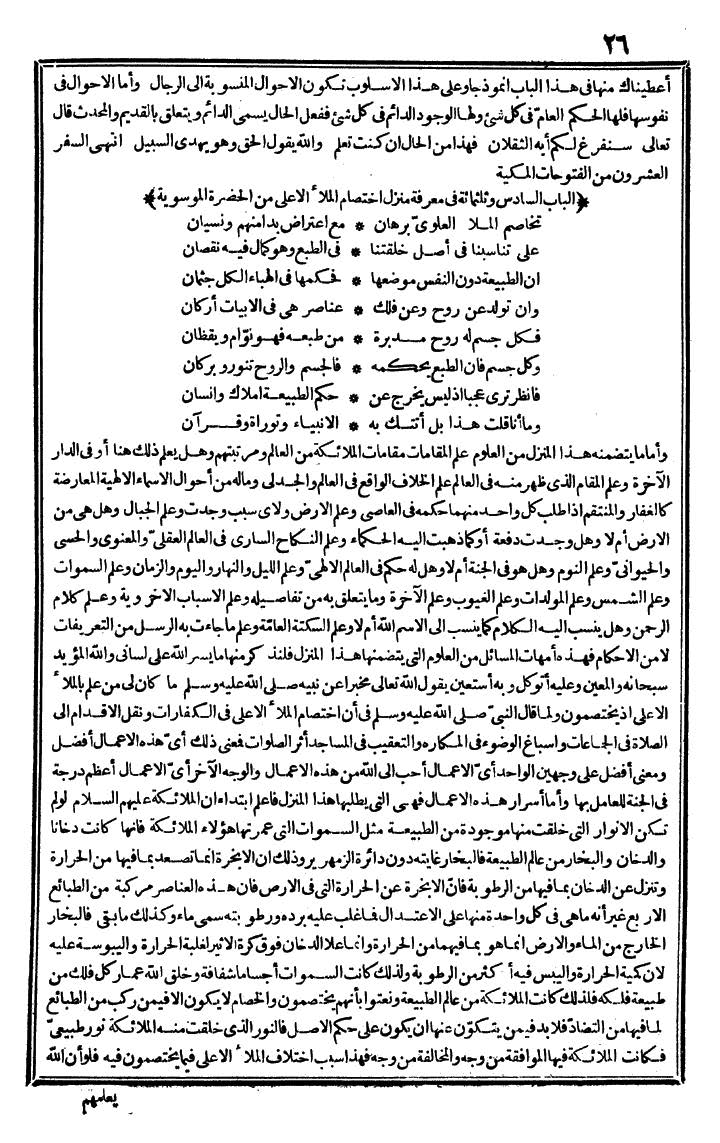 ٢٦
أعطيناك منها فى هذا الباب انموذجا وعلى هذا الاسلوب تكون الاحوال المنسوبة الى الرجال وأما الاحوال فى
نفوسها فلها الحكم العامّ فى كل شئ ولها الوجود الدائم فى كل شئ ففعل الحال يسمى الدائم ويتعلق بالقديم والمحدث قال
تعالى سنفرغ لكم أيه الثقلان فهذا من الحال ان كنت تعلم والله يقول الحق وهو يهدى السبيل انتهى السفر
العشرون من الفتوحات المكية
﴿الباب السادس وثلثمائة فى معرفة منزل اختصام الملأ الاعلى من الحضرة الموسوية﴾
تخاصم الملا العلوىّ برهان * مع اعتراض بدا منهم ونسيان
على تناسبنا فى أصل خلقتنا * فى الطبع وهو كمال فيه نقصان
ان الطبيعة دون النفس موضعها * فحكمها فى الهباء الكل جثمان
وان تولد عن روح وعن فلك * عناصر هى فى الابيات أركان
فكل جسم له روح مدبرة * من طبعه فهو نوّام ويقظان
وكل جسم فان الطبع يحكمه * فالجسم والروح تنور وبركان
فانظر ترى عجبا اذ ليس يخرج عن * حكم الطبيعة املاك وانسان
وما أنا قلت هذا بل أتتك به * الانبياء وتوراة وقرآن
وأما ما يتضمنه هذا المنزل من العلوم علم المقامات مقامات الملائكة من العالم ومرتبتهم وهل يعلم ذلك هنا أو فى الدار
الآخرة وعلم المقام الذى ظهر منه فى العالم علم الخلاف الواقع فى العالم والجدلى وماله من أحوال الاسماء الالهية المعارضة
كالغفار والمنتقم اذا طلب كل واحد منهما حكمه فى العاصى وعلم الارض ولاى سبب وجدت وعلم الجبال وهل هى من
الارض أم لا وهل وجدت دفعة أو كما ذهبت اليه الحكماء وعلم النكاح السارى فى العالم العقلىّ والمعنوى والحسى
والحيوانىّ وعلم النوم وهل هو فى الجنة أم لا وهل له حكم فى العالم الالهىّ وعلم الليل والنهار واليوم والزمان وعلم السموات
وعلم الشمس وعلم المولدات وعلم الغيوب وعلم الآخرة وما يتعلق به من تفاصيله وعلم الاسباب الاخروية وعلم كلام
الرحمن وهل ينسب اليه الكلام كما ينسب الى الاسم الله أم لا وعلم السكتة العامّة وعلم ما جاءت به الرسل من التعريفات
لا من الاحكام فهذه أمهات المسائل من العلوم التى يتضمنها هذا المنزل فلنذكر منها ما يسر الله على لسانى والله المؤيد
سبحانه والمعين وعليه أتوكل وبه أستعين يقول الله تعالى مخبرا عن نبيه صلى الله عليه وسلم ما كان لى من علم بالملأ
الاعلى اذ يختصمون ولما قال النبىّ صلى الله عليه وسلم فى أن اختصام الملأ الاعلى فى الكفارات ونقل الاقدام الى
الصلاة فى الجماعات واسباغ الوضوء فى المكاره والتعقيب فى المساجد أثر الصلوات فعنى ذلك أىّ هذه الاعمال أفضل
ومعنى أفضل على وجهين الواحد أىّ الاعمال أحب الى الله من هذه الاعمال والوجه الآخر أىّ الاعمال أعظم درجة
فى الجنة للعامل بها وأما أسرار هذه الاعمال فهى التى يطلبها هذا المنزل فاعلم ابتداء ان الملائكة عليهم السلام لو لم
تكن الانوار التى خلقت منها موجودة من الطبيعة مثل السموات التى عمرتها هؤلاء الملائكة فانها كانت دخانا
والدخان والبخار من عالم الطبيعة فالبخار غايته دون دائرة الزمهرير وذلك ان الابخرة انما تصعد بما فيها من الحرارة
وتنزل عن الدخان بما فيها من الرطوبة فانّ الابخرة عن الحرارة التى فى الارض فان هذه العناصر مركبة من الطبائع
الاربع غير أنه ما هى فى كل واحدة منها على الاعتدال فما غلب عليه برده ورطوبته سمى ماء وكذلك ما بقى فالبخار
الخارج من الماء والارض انما هو بما فيهما من الحرارة وانما علا الدخان فوق كرة الاثير لغلبة الحرارة واليبوسة عليه
لان كمية الحرارة واليبس فيه أكثر من الرطوبة ولذلك كانت السموات أجساما شفافة وخلق الله عمار كل فلك من
طبيعة فلكه فلذلك كانت الملائكة من عالم الطبيعة ونعتوا بأنهم يختصمون والخصام لا يكون الا فيمن ركب من الطبائع
لما فيها من التضادّ فلا بد فيمن يتكوّن عنها ان يكون على حكم الاصل فالنور الذى خلقت منه الملائكة نور طبيعىّ
فكانت الملائكة فيها الموافقة من وجه والمخالفة من وجه فهذا سبب اختلاف الملأ الاعلى فيما يختصمون فيه فلو أن الله
يعلمهم